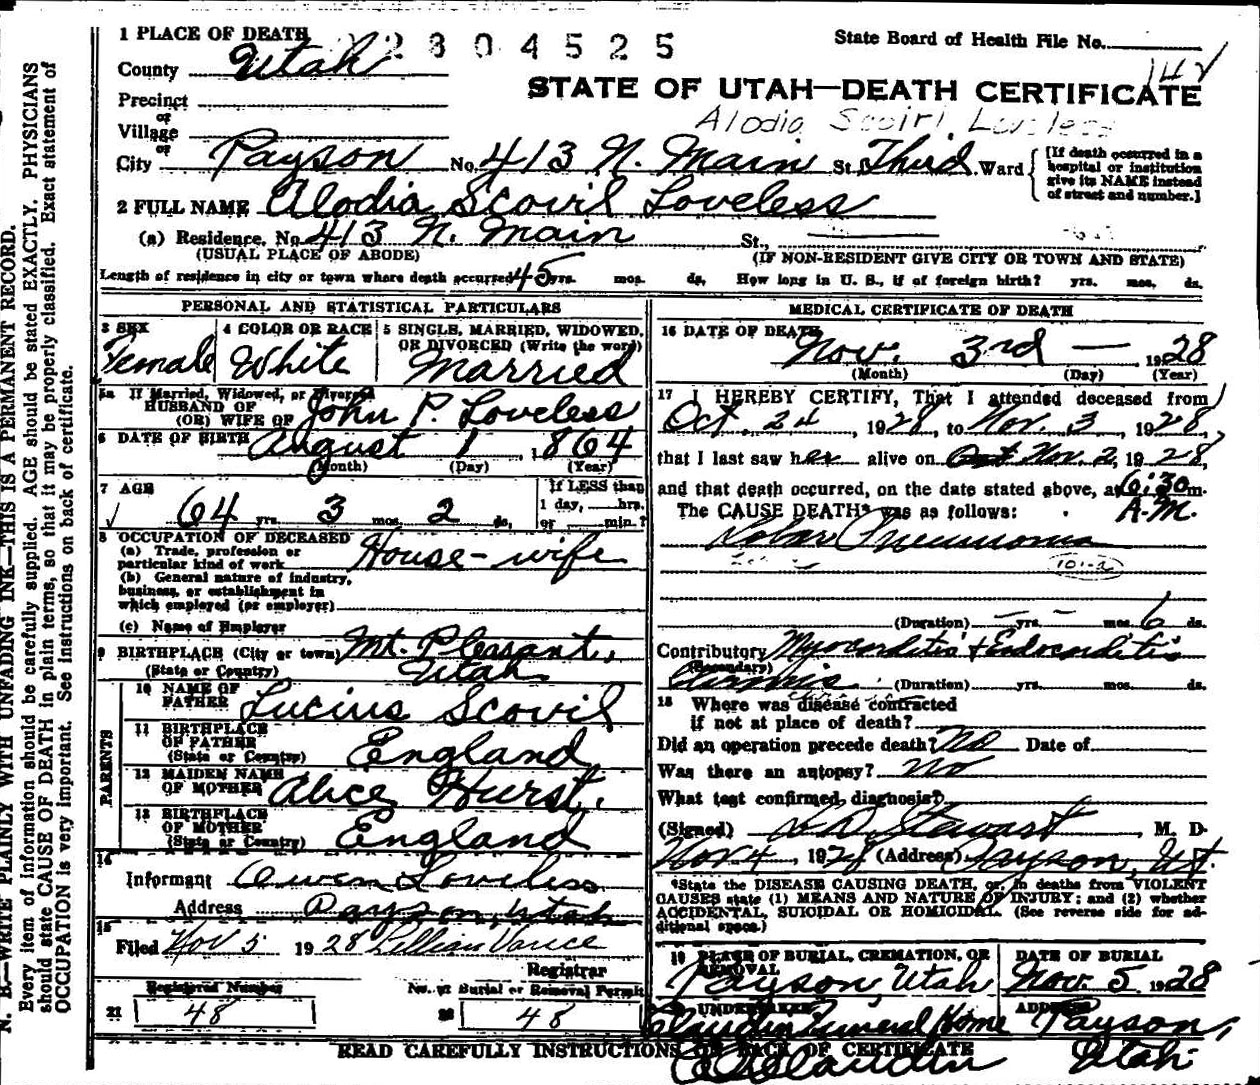 1 PLACE OF DEATH
2304525
State Board of Health File No.
County Utah
142
STATE OF UTAH—DEATH CERTIFICATE
Precinct
or
Village
or
Alodia Loveless
City Payson No. 413 N. Main St. Third Ward
[If death occurred in a hospital or institution give its NAME instead of street and number.]
2 FULL NAME Alodia Scovil Loveless
(a) Residence. No. 413 N. Main St.,
(USUAL PLACE OF ABODE) (IF NON-RESIDENT GIVE CITY OR TOWN AND STATE)
Length of residence in city or town where death occurred 45 yrs. mos. ds. How long in U. S., if of foreign birth? yrs. mos. ds.
PERSONAL AND STATISTICAL PARTICULARS
3 SEX
Female
4 COLOR OR RACE
White
5 SINGLE, MARRIED, WIDOWED,
OR DIVORCED (Write the word)
Married
5a If Married, Widowed, or Divorced
HUSBAND OF
(OR) WIFE OF John P. Loveless
6 DATE OF BIRTH August 1 1864
(Month) (Day) (Year)
7 AGE
64 yrs. 3 mos. 2 ds.
If LESS than
1 day, hrs.
or min.?
8 OCCUPATION OF DECEASED
(a) Trade, profession or
particular kind of work House-wife
(b) General nature of industry,
business, or establishment in
which employed (or employer)
(c) Name of Employer
9 BIRTHPLACE (City or town) Mt. Pleasant,
(State or Country) Utah
PARENTS
10 NAME OF
FATHER Lucius Scovil
11 BIRTHPLACE
OF FATHER
(State or Country) England
12 MAIDEN NAME
OF MOTHER Alice Hurst.
13 BIRTHPLACE
OF MOTHER
(State or Country) England
14
Informant Owen Loveless
Address Payson, Utah
15
Filed Nov 5 1928 Lillian Vance
Registrar
Registered Number
21 48
No. of Burial or Removal Permit
22 48
MEDICAL CERTIFICATE OF DEATH
16 DATE OF DEATH
Nov. 3rd — 1928
(Month) (Day) (Year)
17 I HEREBY CERTIFY, That I attended deceased from
Oct. 24, 1928, to Nov. 3, 1928,
that I last saw her alive on Nov. 2, 1928,
and that death occurred, on the date stated above, at 6:30 m.
The CAUSE DEATH* was as follows: A.M.
Lobar Pneumonia
101-a
(Duration) yrs. mos. 6 ds.
Contributory Myocarditis + Endocarditis
(Secondary)
Chronic (Duration) yrs. mos. ds.
18 Where was disease contracted
if not at place of death?
Did an operation precede death? No Date of
Was there an autopsy? No
What test confirmed diagnosis?
(Signed) L D Stewart, M. D.
Nov 4, 1928 (Address) Payson, Ut.
*State the DISEASE CAUSING DEATH, or, in deaths from VIOLENT
CAUSES state (1) MEANS AND NATURE OF INJURY; and (2) whether
ACCIDENTAL, SUICIDAL OR HOMICIDAL. (See reverse side for ad-
ditional space.)
19 PLACE OF BURIAL, CREMATION, OR
REMOVAL
Payson, Utah
DATE OF BURIAL
Nov. 5 1928
20 UNDERTAKER
Claudin Funeral Home
ADDRESS
Payson,
Utah
Claudin
READ CAREFULLY INSTRUCTIONS ON BACK OF CERTIFICATE
N. B.—WRITE PLAINLY WITH UNFADING INK—THIS IS A PERMANENT RECORD.
Every item of information should be carefully supplied. AGE should be stated EXACTLY. PHYSICIANS
should state CAUSE OF DEATH in plain terms, so that it may be properly classified. Exact statement of
OCCUPATION is very important. See instructions on back of certificate.